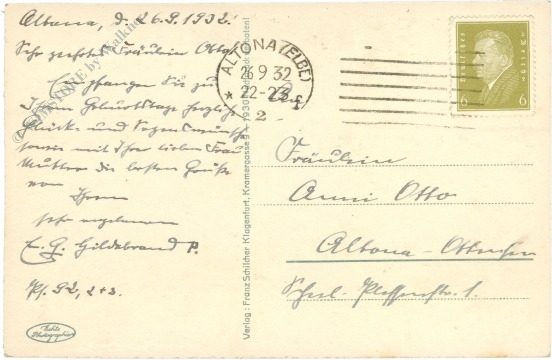 Altona, d. 26.9.1932.
Sehr geehrtes Fräulein Otto!
Empfangen Sie zu
Ihrem Geburtstage herzliche
Glück- und Segenswünsche
sowie mit Ihrer lieben Frau
Mutter die besten Grüße
von
Ihrem
sehr ergebenen
E. G. Hildebrand P.
Ps. 92, 2+3.
Echte Photographie
Verlag: Franz Schilcher Klagenfurt, Kramergasse 9 - 1930
ALTONA (ELBE)
26 9 32
22-23
2
6 6
Fräulein
Anni Otto
Altona-Ottensen